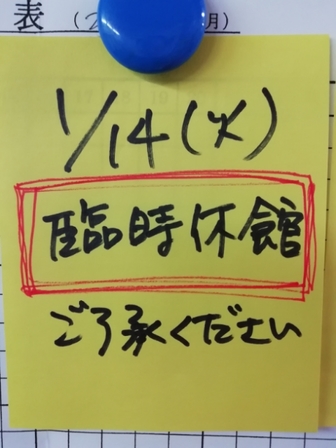 表(2 月)
1/14(火)
臨時休館
ご了承ください